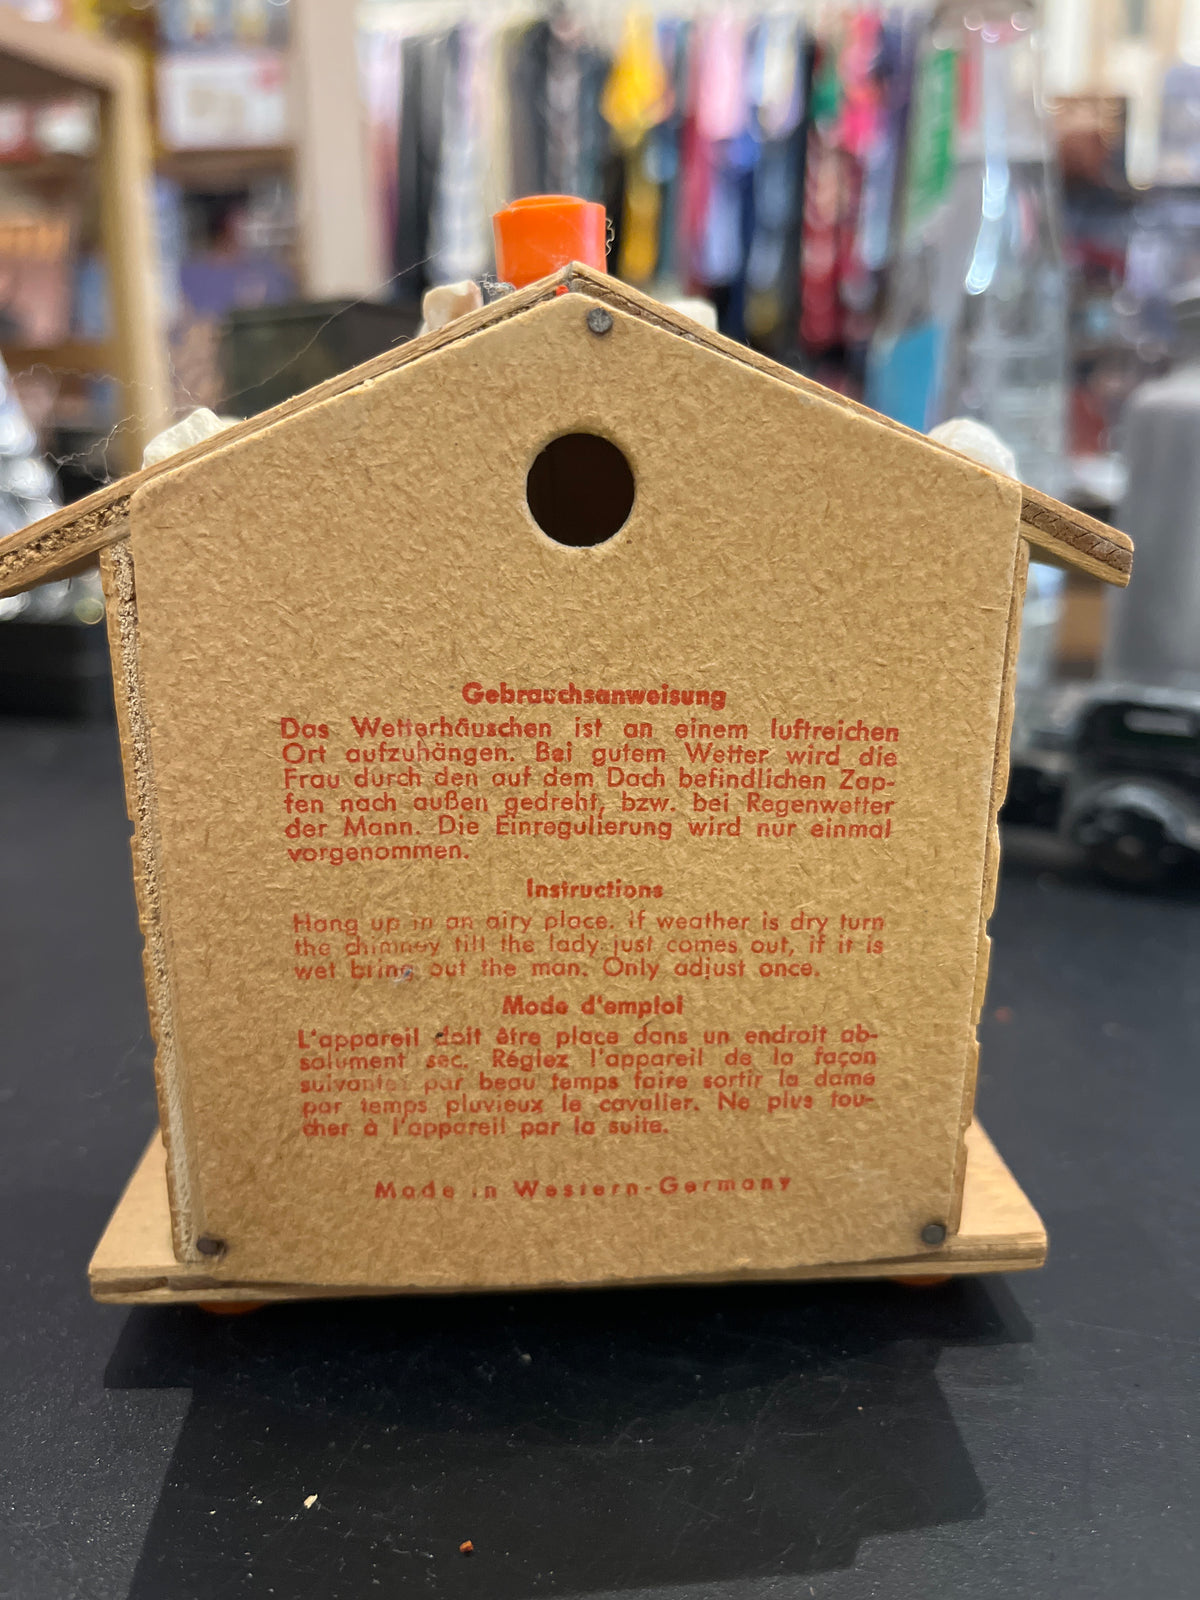 Gebrauchsanweisung
Das Wetterhäuschen ist an einem luftreichen
Ort aufzuhängen. Bei gutem Wetter wird die
Frau durch den auf dem Dach befindlichen Zap-
fen nach außen gedreht, bzw. bei Regenwetter
der Mann. Die Einregulierung wird nur einmal
vorgenommen.
Instructions
Hang up in an airy place. If weather is dry turn
the chimney till the lady just comes out, if it is
wet bring out the man. Only adjust once.
Mode d'emploi
L'appareil doit être place dans un endroit ab-
solument sec. Réglez l'appareil de la façon
suivante: par beau temps faire sortir la dame
par temps pluvieux le cavalier. Ne plus tou-
cher à l'appareil par la suite.
Made in Western-Germany